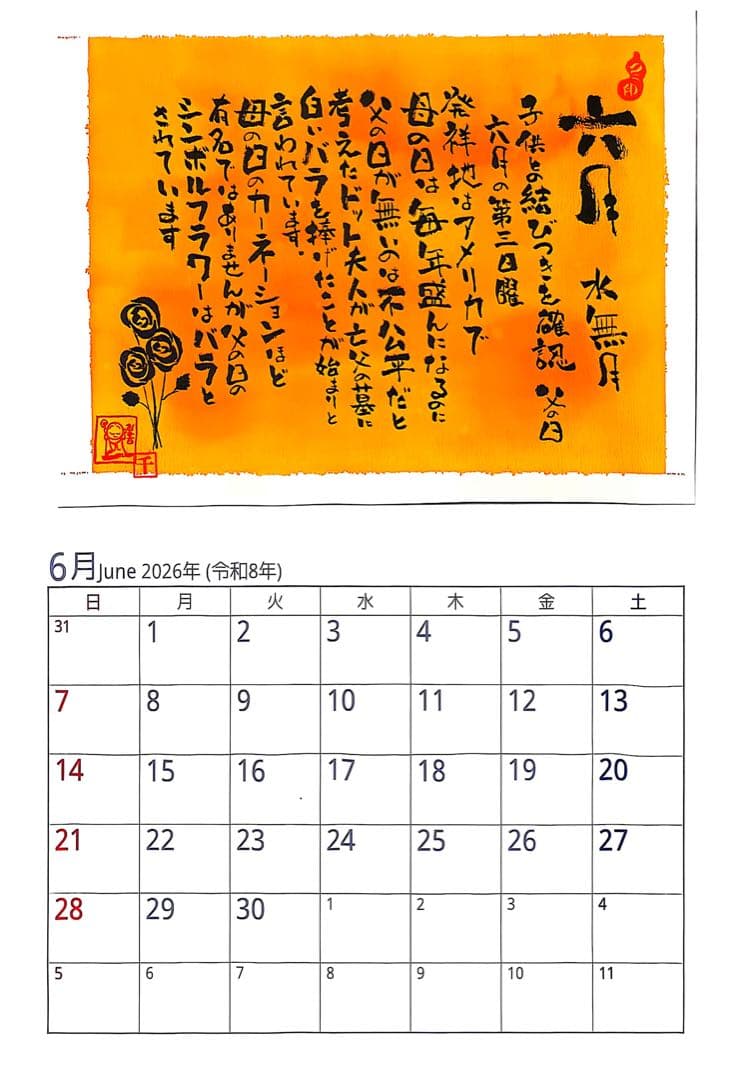 六月 水無月
子供との結びつきを確認 父の日
六月の第三日曜
発祥地はアメリカで
母の日は毎年盛んになるのに
父の日が無いのは不公平だと
考えたドット夫人が亡父の墓に
白いバラを捧げたことが始まりと
言われています.
母の日のカーネーションほど
有名ではありませんが父の日の
シンボルフラワーはバラと
されています
千
6月June 2026年 (令和8年)
日 月 火 水 木 金 土
31 1 2 3 4 5 6
7 8 9 10 11 12 13
14 15 16 17 18 19 20
21 22 23 24 25 26 27
28 29 30 1 2 3 4
5 6 7 8 9 10 11